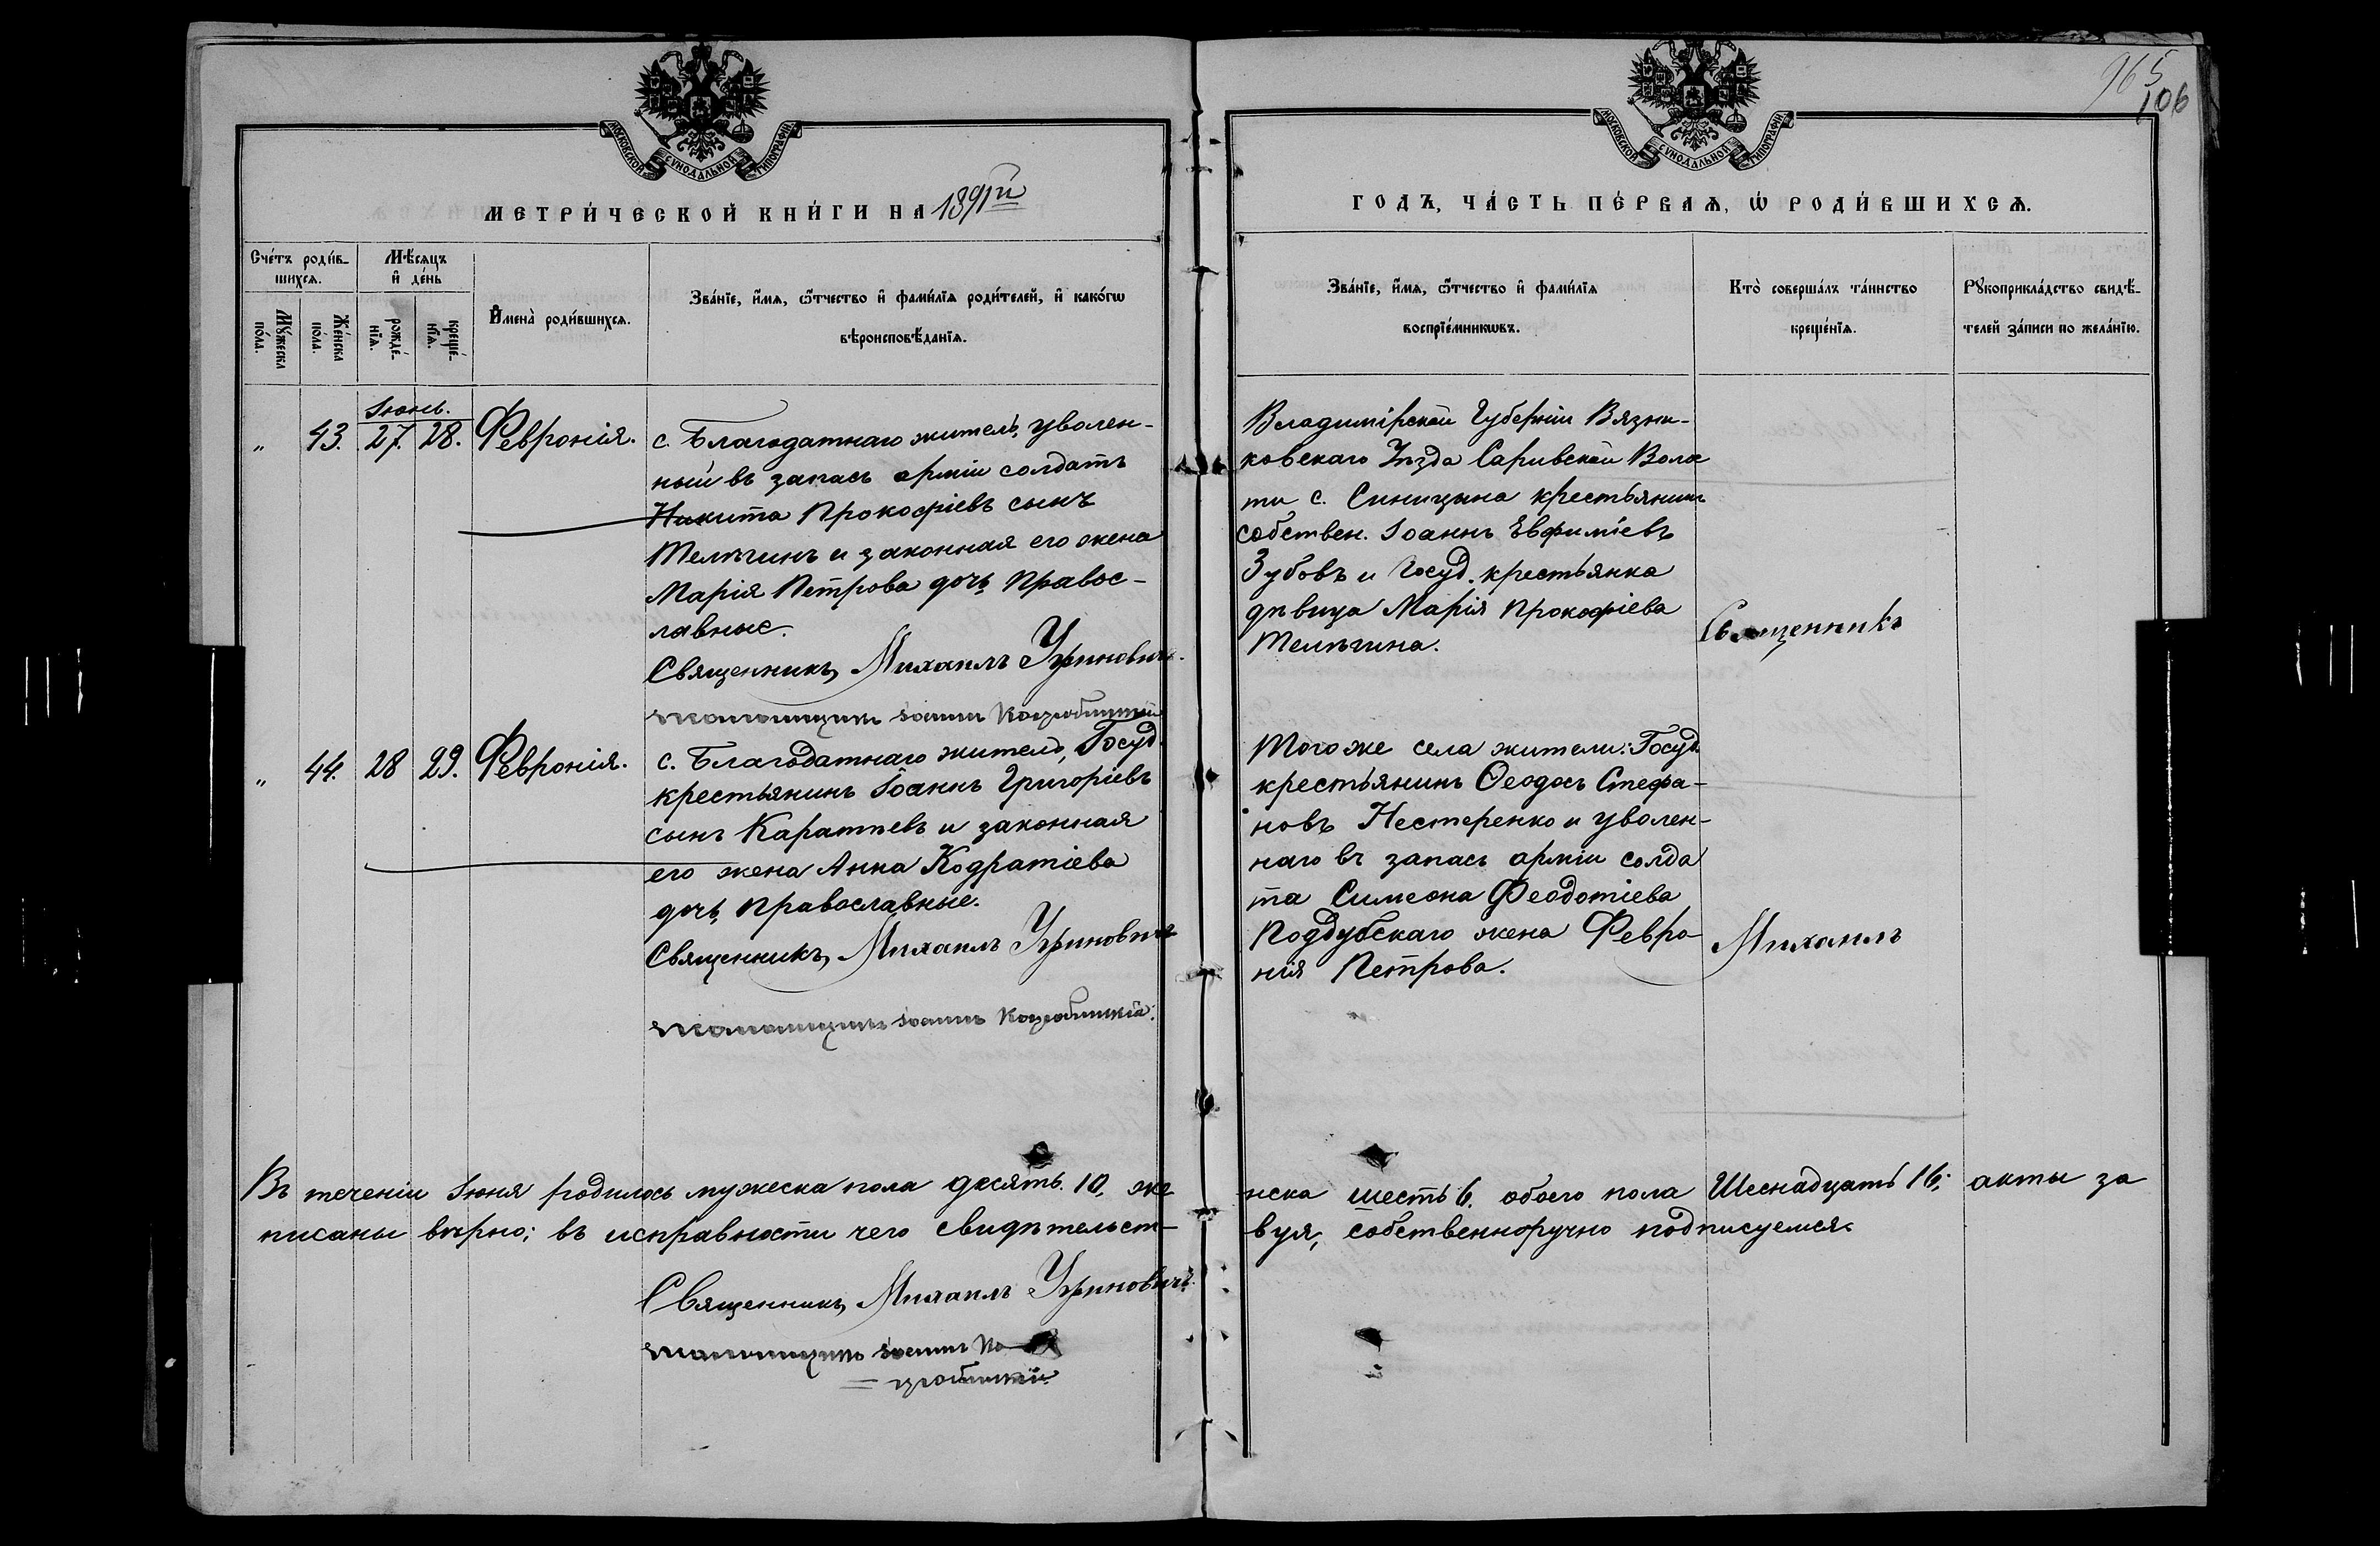 965
106
МОСКОВСКОЙ СУНОДАЛЬНОЙ ТИПОГРАФІИ
МОСКОВСКОЙ СУНОДАЛЬНОЙ ТИПОГРАФІИ
МЕТРИ́ЧЕСКОЙ КНИ́ГИ НА 1891й
ГОДЪ, ЧА́СТЬ ПЕ́РВАѦ, Ѡ҆ РОДИ́ВШИХСѦ.
Сче́тъ роди́в-
шихсѧ.
Мѹ́жеска по́ла.
Же́нска по́ла.
Мѣ́сѧцъ
и҆ де́нь
рожде́-
нїѧ.
креще́-
нїѧ.
И҆мена̀ роди́вшихсѧ.
Зва́нїе, и҆́мѧ, ѻ҆́тчество и҆ фами́лїѧ роди́телей, и҆ како́гѡ
вѣроисповѣ́данїѧ.
Зва́нїе, и҆́мѧ, ѻ҆́тчество и҆ фами́лїѧ
воспрїе́мникѡвъ.
Кто̀ соверша́лъ та́инство
креще́нїѧ.
Рѹкоприкла́дство свидѣ́-
телей за́писи по жела́нїю.
Іюнь.
„ 43. 27. 28. Февронія.
с. Благодатнаго житель, уволен-
ный въ запасъ арміи солдатъ
Никита Прокофіевъ сынъ
Мелѣгинъ и законная его жена
Марія Петрова дочь, правос-
лавные.
Священникъ, Михаилъ
Іоаннъ
Владимірской Губерніи Вязни-
ковскаго Уѣзда Саривской Волос
ти с. Синицына крестьянинъ
собствен. Іоаннъ Евфиміевъ
Зубовъ и Госуд. крестьянка
дѣвица Марія Прокофіева
Мелѣгина.
Священникъ
„ 44. 28 29. Февронія.
с. Благодатнаго житель, Госуд.
крестьянинъ Іоаннъ Григоріевъ
сынъ Каратѣевъ и законная
его жена Анна Кодратіева
дочь, православные.
Священникъ, Михаилъ
Іоаннъ
Того же села жители: Госуд.
крестьянинъ Ѳеодосъ Стефа-
новъ Нестеренко и уволен-
наго въ запасъ арміи солда
та Симеона Феодотіева
Поддубскаго жена Февро-
нія Петрова.
Михаилъ
Въ теченіи Іюня родилось мужеска пола десять. 10, же
нска шесть 6. обоего пола Шеснадцать 16; акты за
писаны вѣрно; въ исправности чего свидѣтельст-
вуя, собственноручно подписуемся.
Священникъ, Михаилъ
Іоаннъ